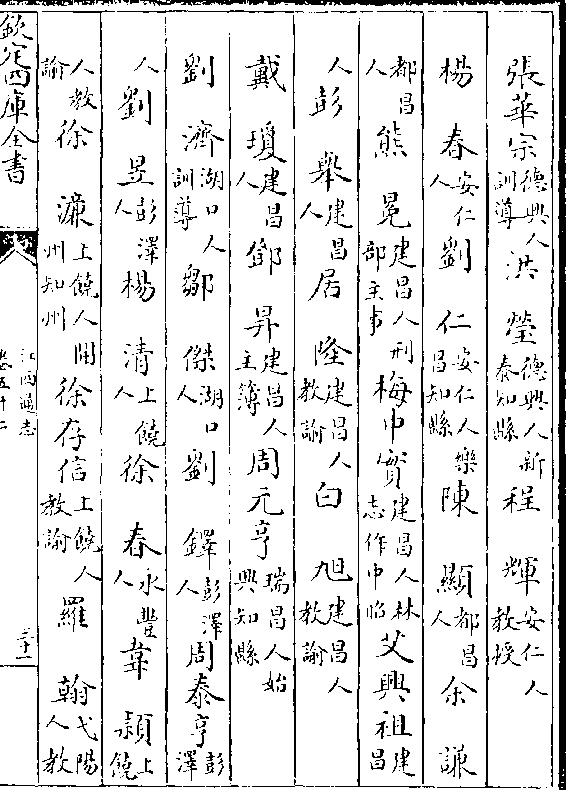 張華宗德興人訓導洪瑩德興人新泰知縣程輝安仁人教授
楊春安仁人劉仁安仁人樂昌知縣陳顯都昌人余謙
都昌人熊冕建昌人刑部主事梅中實建昌人林志作中貽艾興祖建昌
人彭舉建昌人居隆建昌人教諭白旭建昌人教諭
戴瓊建昌人鄧昇建昌人主簿周元亨瑞昌人始興知縣
劉濟湖口人訓導鄒傑湖口人劉鐸彭澤人周泰亨彭澤
人劉昱彭澤人楊清上饒人徐春永豐人韋頴上饒
人教諭徐濂上饒人開州知州徐存信上饒人教諭羅翰弋陽人教
欽定四庫全書
江西通志
卷五十二
三十一